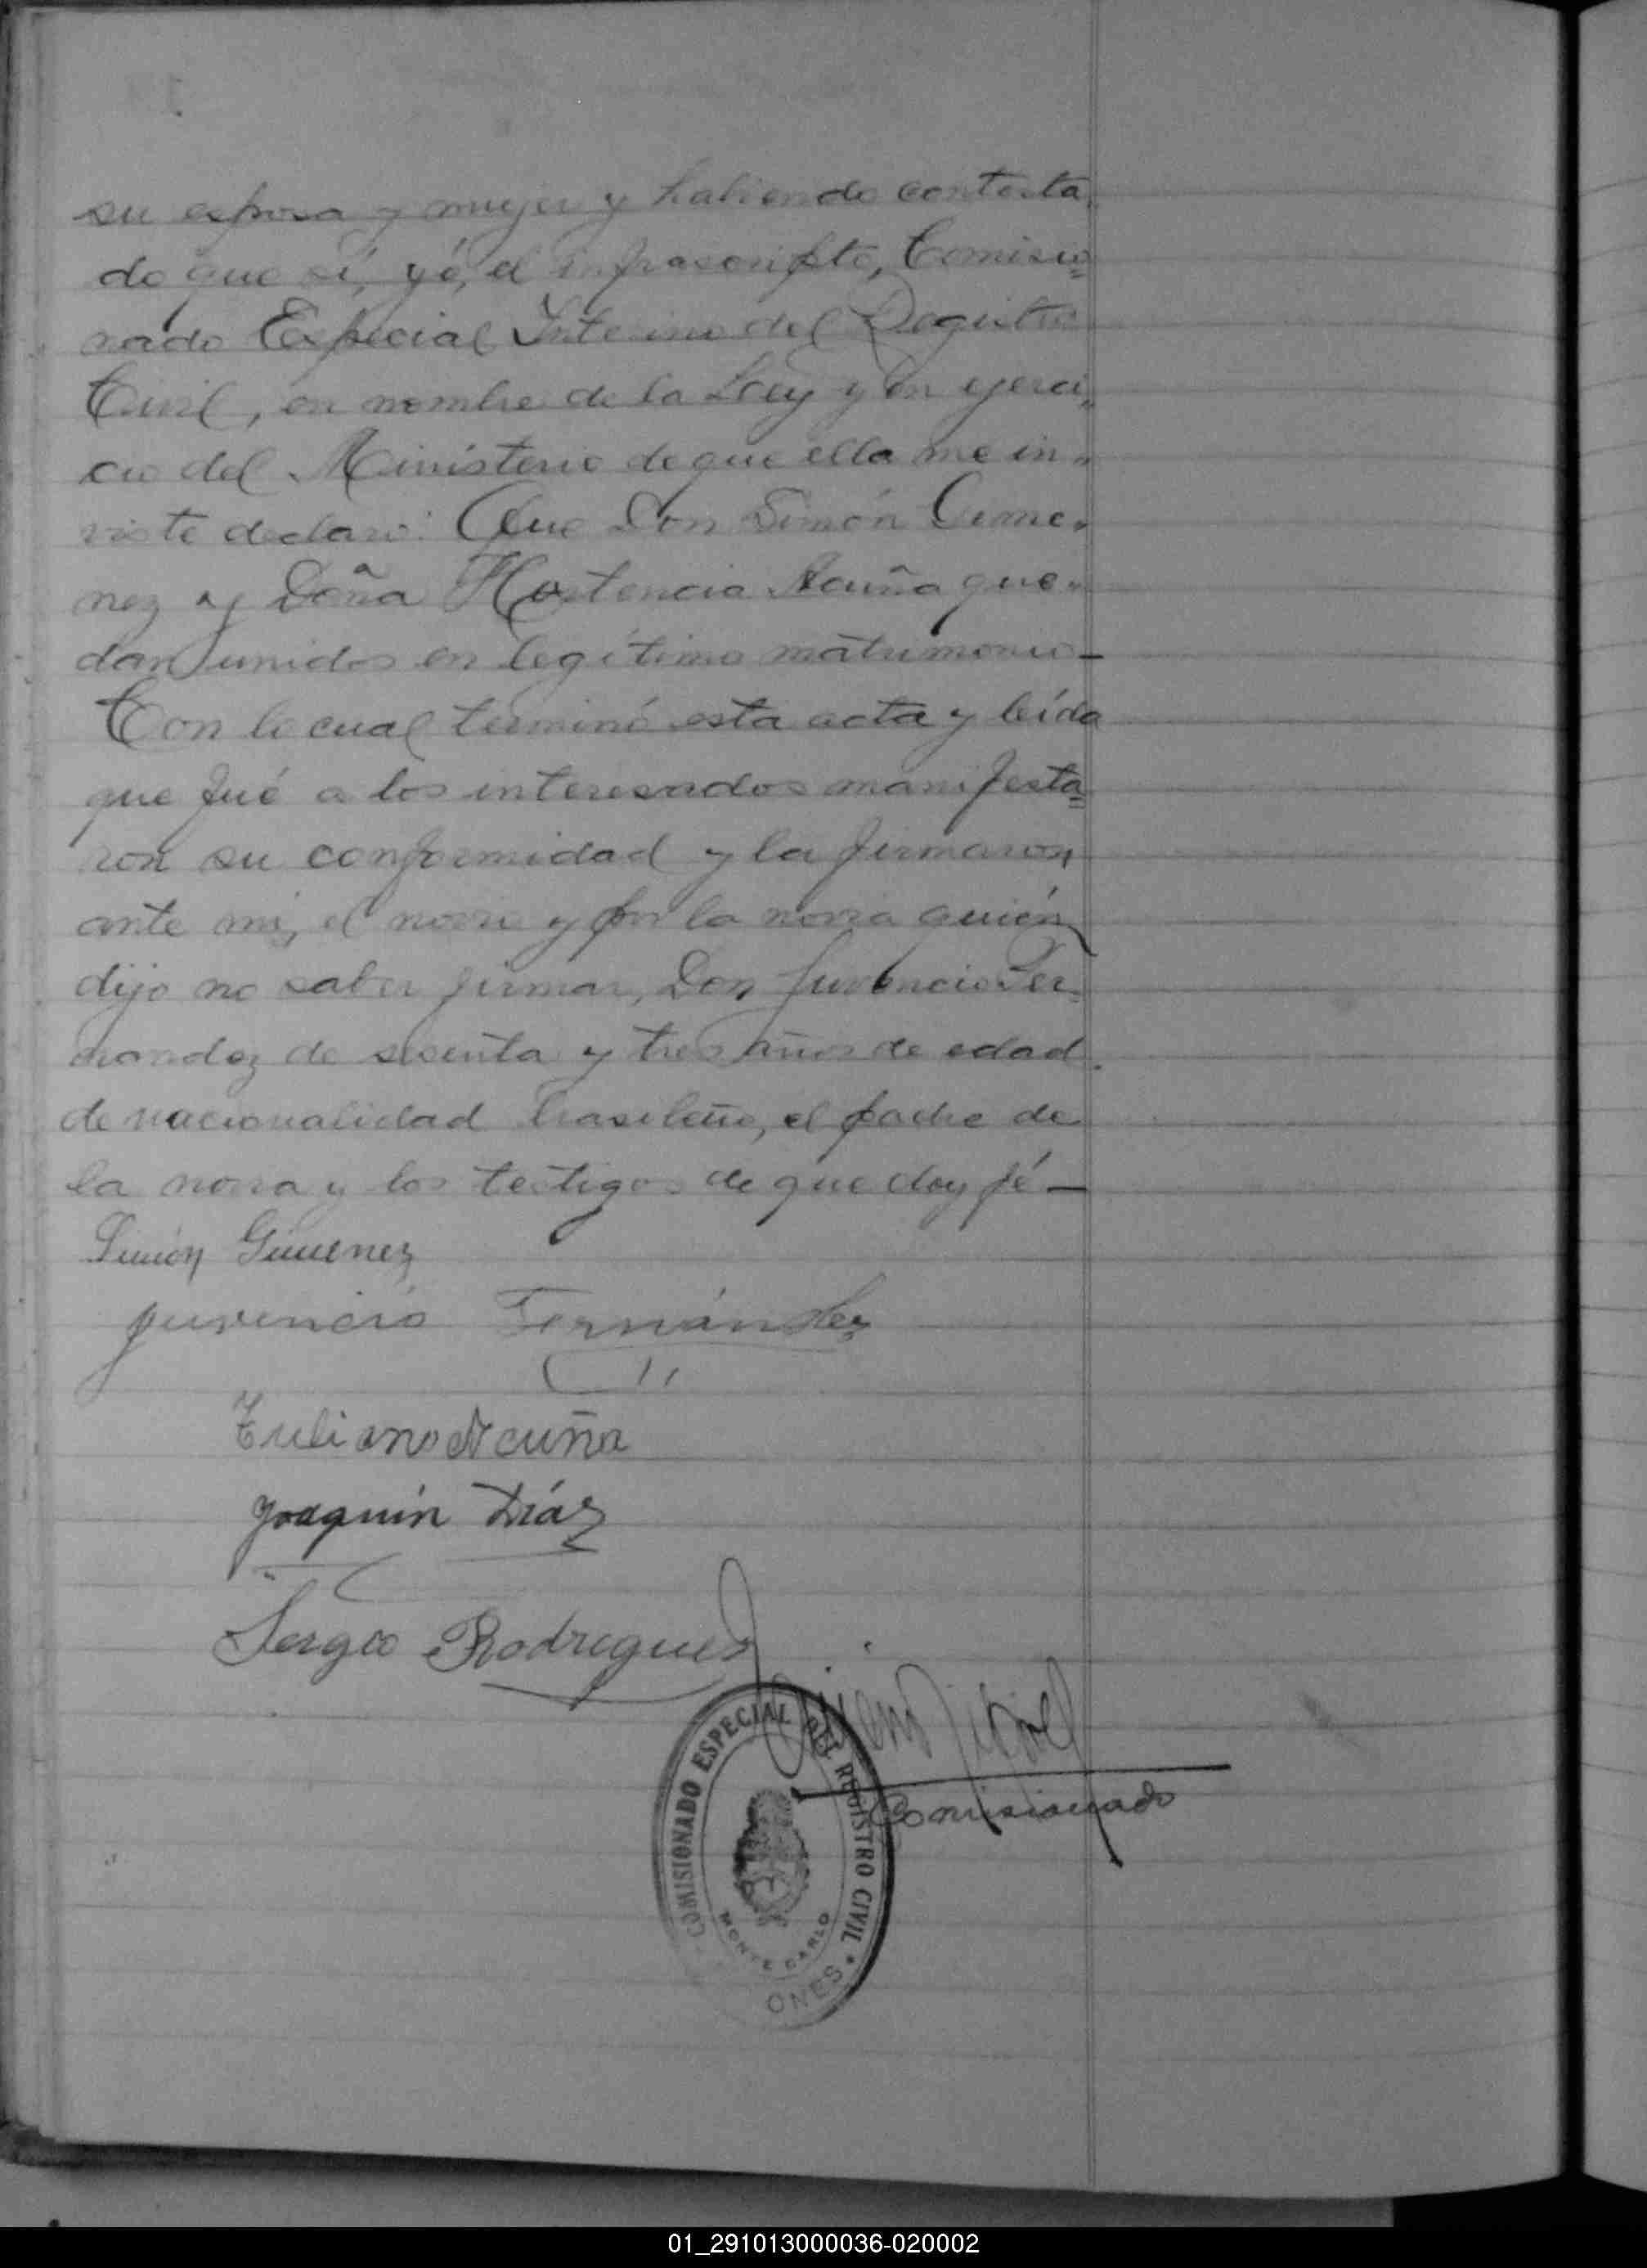 su esposa y mujer y habiendo contesta„
do que sí, yó, el infrascripto, Comisio=
nado Especial Interino del Registro
Civil, en nombre de la Ley y en ejerci„
cio del Ministerio de que ella me in„
viste declaro: Que Don Simón Gime„
nez y Doña Hortencia Acuña que„
dan unidos en legítimo matrimonio—
Con lo cual terminó esta acta y leída
que fué a los interesados manifesta=
ron su conformidad y la firmaron
ante mi, el novio y por la novia quién
dijo no saber firmar, Don Juvencio Fer=
nandez de sesenta y tres años de edad.
de nacionalidad brasileño, el padre de
la novia y los testigos de que doy fé—
Simón Gimenez
Juvencio Fernández
Tuliano Acuña
Joaquín Díaz
Sergio Rodriguez
Comisionado
COMISIONADO ESPECIAL DEL REGISTRO CIVIL
MONTE CARLO
ONES
01_291013000036-020002